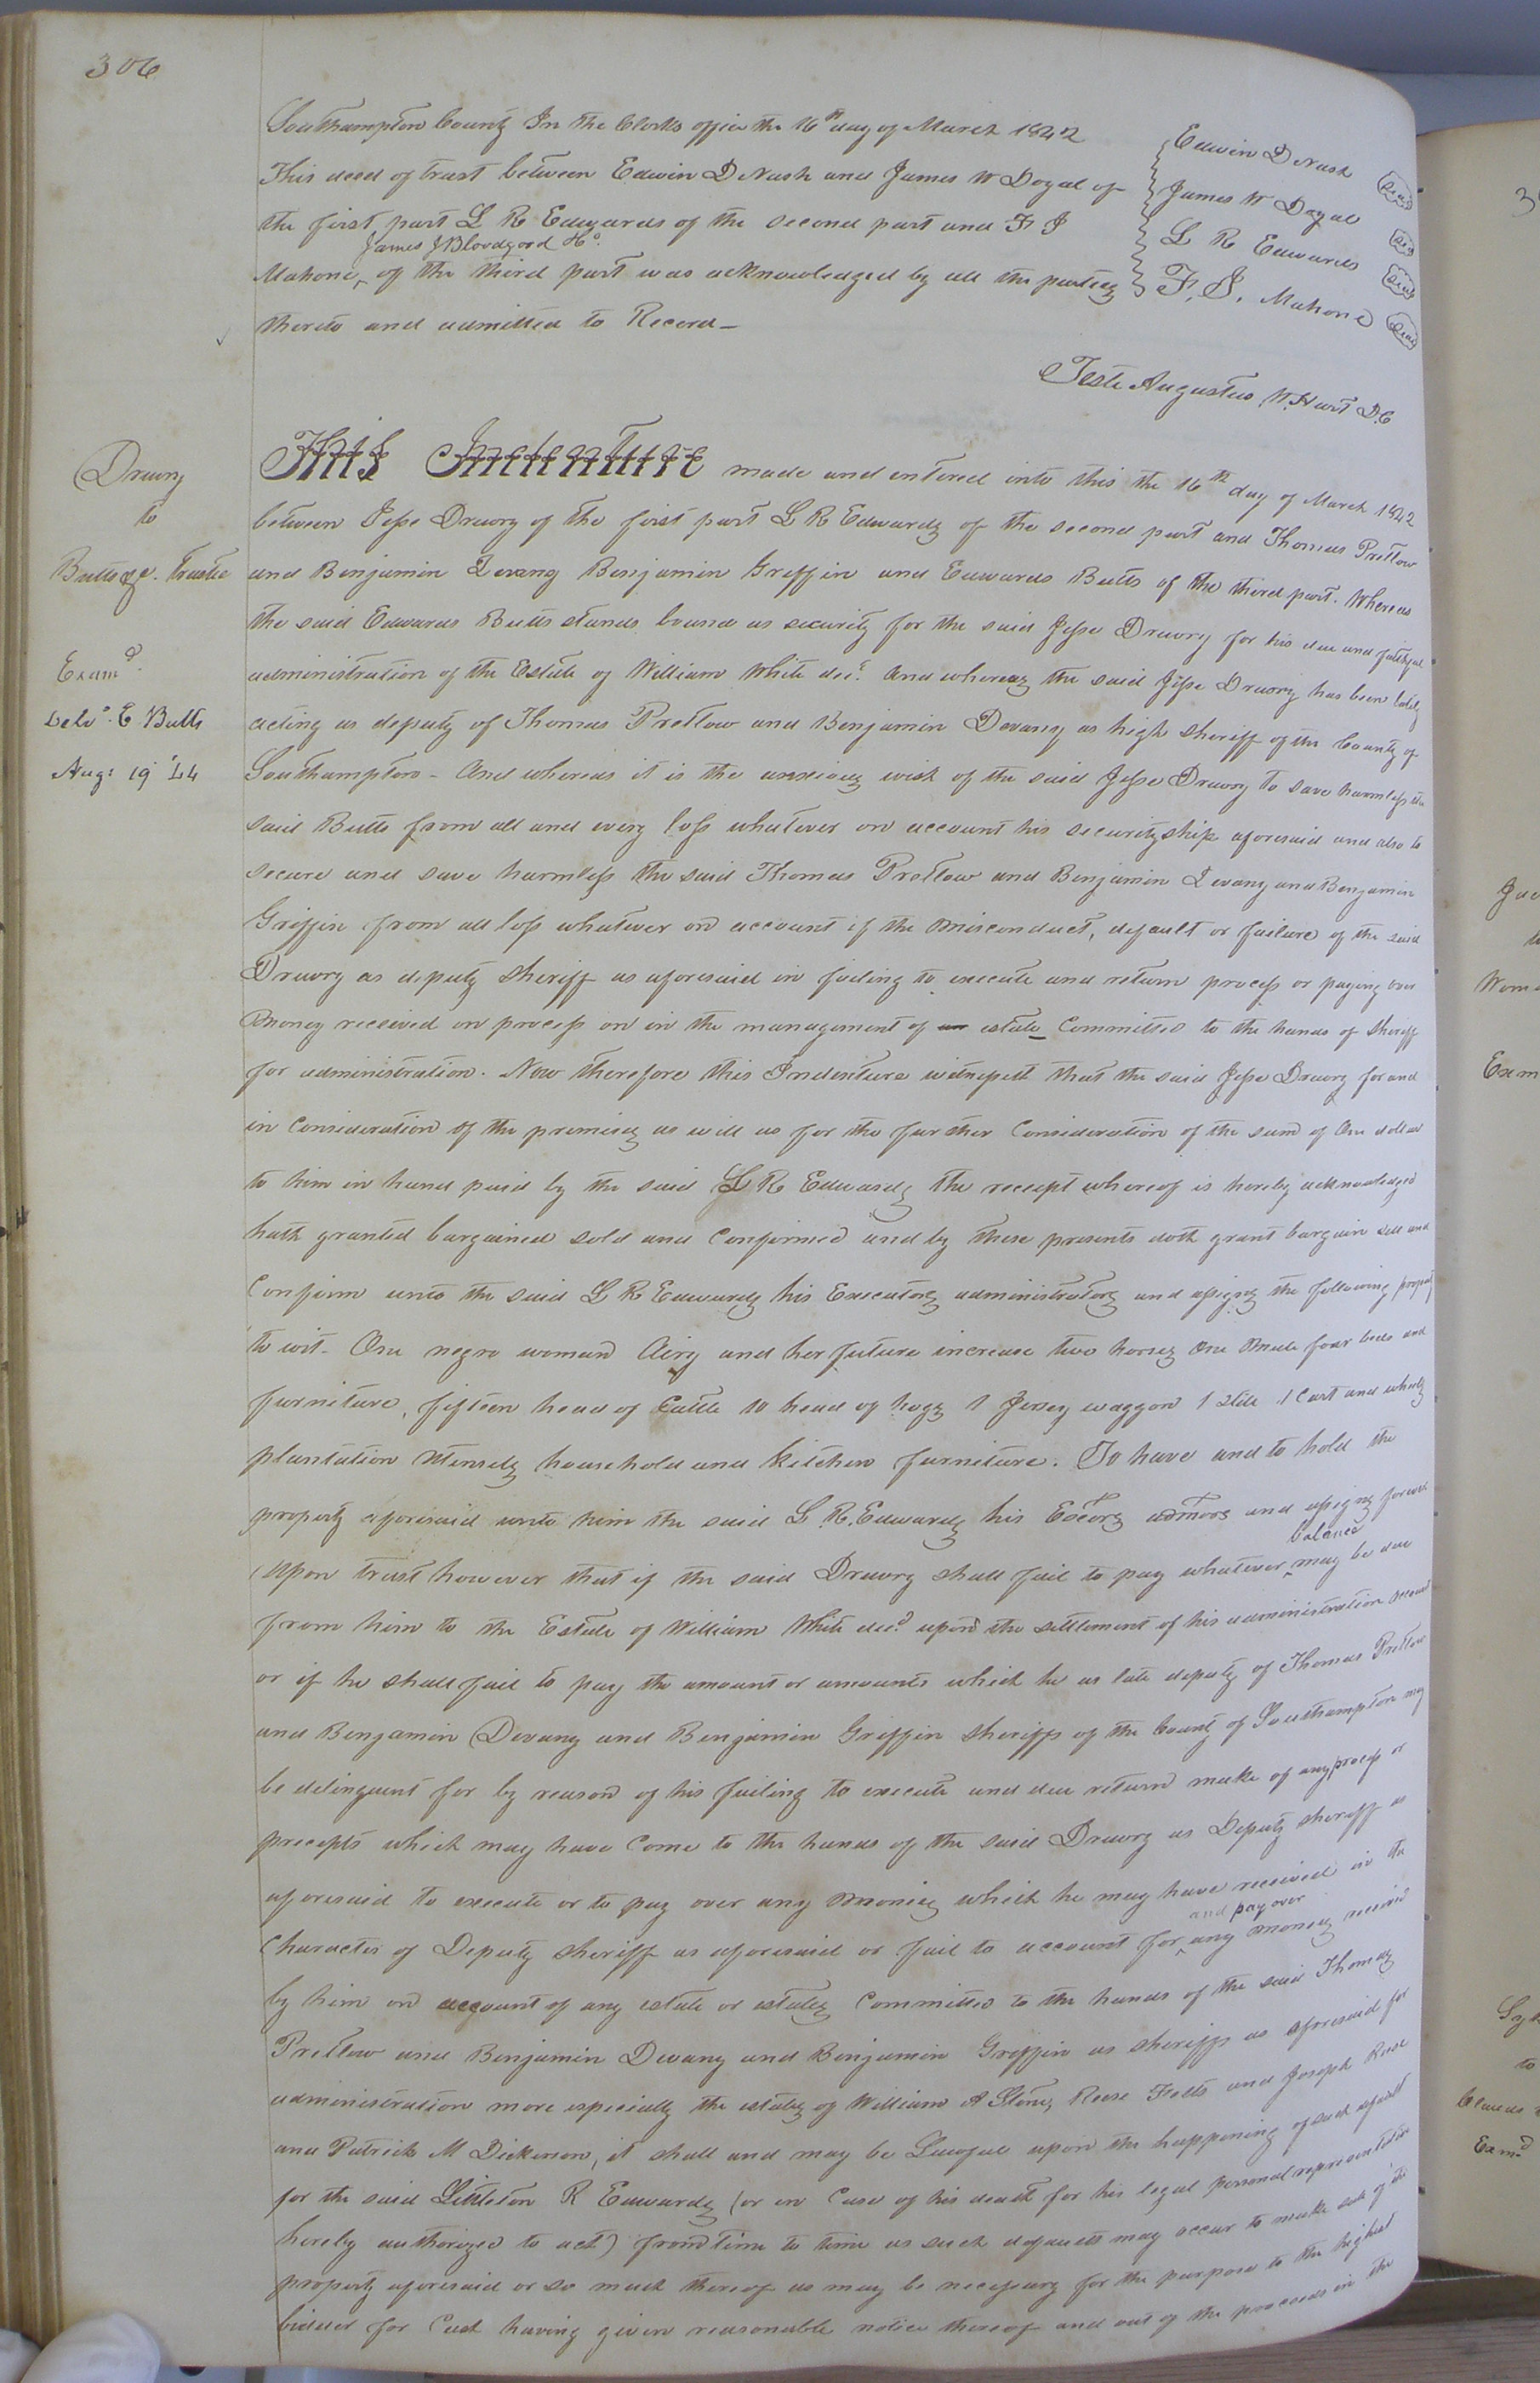 306
Southampton County In the Clerks office the 16th day of March 1842
This deed of trust between Edwin D Nash and James W Doyal of
the first part L R Edwards of the second part and F J
James J Bloodgood &c.
Mahone, of the third part was acknowledged by all the parties
thereto and admitted to Record—
Edwin D Nash Seal
James W Doyal Seal
L R Edwards Seal
F. J. Mahone Seal
Teste Augustus W. Hart D.C
Drewry
to
Butts &c. Trustee
Examd.
Deld. E Butts
Aug: 19 '44
This Indenture made and entered into this the 16th day of March 1842
between Jesse Drewry of the first part L R Edwards of the second part and Thomas Pretlow
and Benjamin Devany Benjamin Griffin and Edwards Butts of the third part. Whereas
the said Edwards Butts stands bound as security for the said Jesse Drewry for his due and faithful
administration of the Estate of William White decd. And whereas the said Jesse Drewry has been lately
acting as deputy of Thomas Pretlow and Benjamin Devany as high sheriff of the County of
Southampton - And whereas it is the anxious wish of the said Jesse Drewry to save harmless the
said Butts from all and every loss whatever on account his securityship aforesaid and also to
secure and save harmless the said Thomas Pretlow and Benjamin Devany and Benjamin
Griffin from all loss whatever on account of the misconduct, default or failure of the said
Drewry as deputy Sheriff as aforesaid in failing to execute and return process or paying over
money received on process or in the management of an estate committed to the hands of Sheriff
for administration. Now therefore this Indenture witnesseth that the said Jesse Drewry for and
in consideration of the premises as well as for the further consideration of the sum of One dollar
to him in hand paid by the said L R Edwards the receipt whereof is hereby acknowledged
hath granted bargained sold and confirmed and by these presents doth grant bargain sell and
confirm unto the said L R Edwards his Executors administrators and assigns the following property
to wit - One negro woman Airy and her future increase two horses one mule four beds and
furniture, fifteen head of Cattle 10 head of hogs 1 Jersey waggon 1 Slide 1 Cart and wheels
plantation utensils household and kitchen furniture. To have and to hold the
property aforesaid unto him the said L. R. Edwards his Exors admors and assigns forever
balance
Upon trust however that if the said Drewry shall fail to pay whatever may be due
from him to the Estate of William White decd. upon the settlement of his administration account
or if he shall fail to pay the amount or amounts which he as late deputy of Thomas Pretlow
and Benjamin Devany and Benjamin Griffin sheriffs of the County of Southampton may
be delinquent for by reason of his failing to execute and due return make of any process or
precepts which may have come to the hands of the said Drewry as Deputy sheriff as
aforesaid to execute or to pay over any monies which he may have received in the
and pay over
character of Deputy sheriff as aforesaid or fail to account for any money received
by him on account of any estate or estates committed to the hands of the said Thomas
Pretlow and Benjamin Devany and Benjamin Griffin as sheriffs as aforesaid for
administration more especially the estates of William A Stone, Reese Felts and Joseph Rose
and Patrick M Dickinson, it shall and may be lawful upon the happening of such default
for the said Littleton R Edwards (or in case of his death for his legal personal representative
hereby authorized to act) from time to time as such defaults may occur to make sale of the
property aforesaid or so much thereof as may be necessary for the purpose to the highest
bidder for Cash having given reasonable notice thereof and out of the proceeds in the